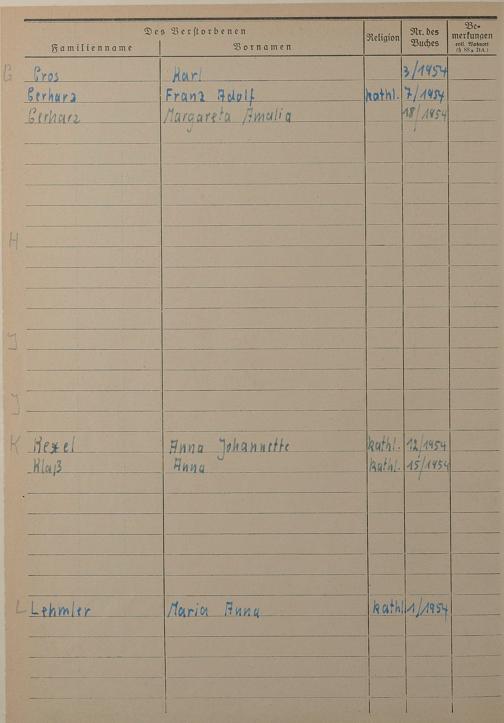 Des Verstorbenen
Familienname Vornamen Religion Nr. des Buches Bemerkungen evtl. Wohnort (§ 88,4 DA.)
G Gros Karl 3/1954
Gerharz Franz Adolf kathl. 7/1954
Gerharz Margareta Amalia 18/1954
H
I
J
K Kexel Anna Johannette kathl. 12/1954
Klaß Anna kathl. 15/1954
L Lehmler Maria Anna kathl. 1/1954